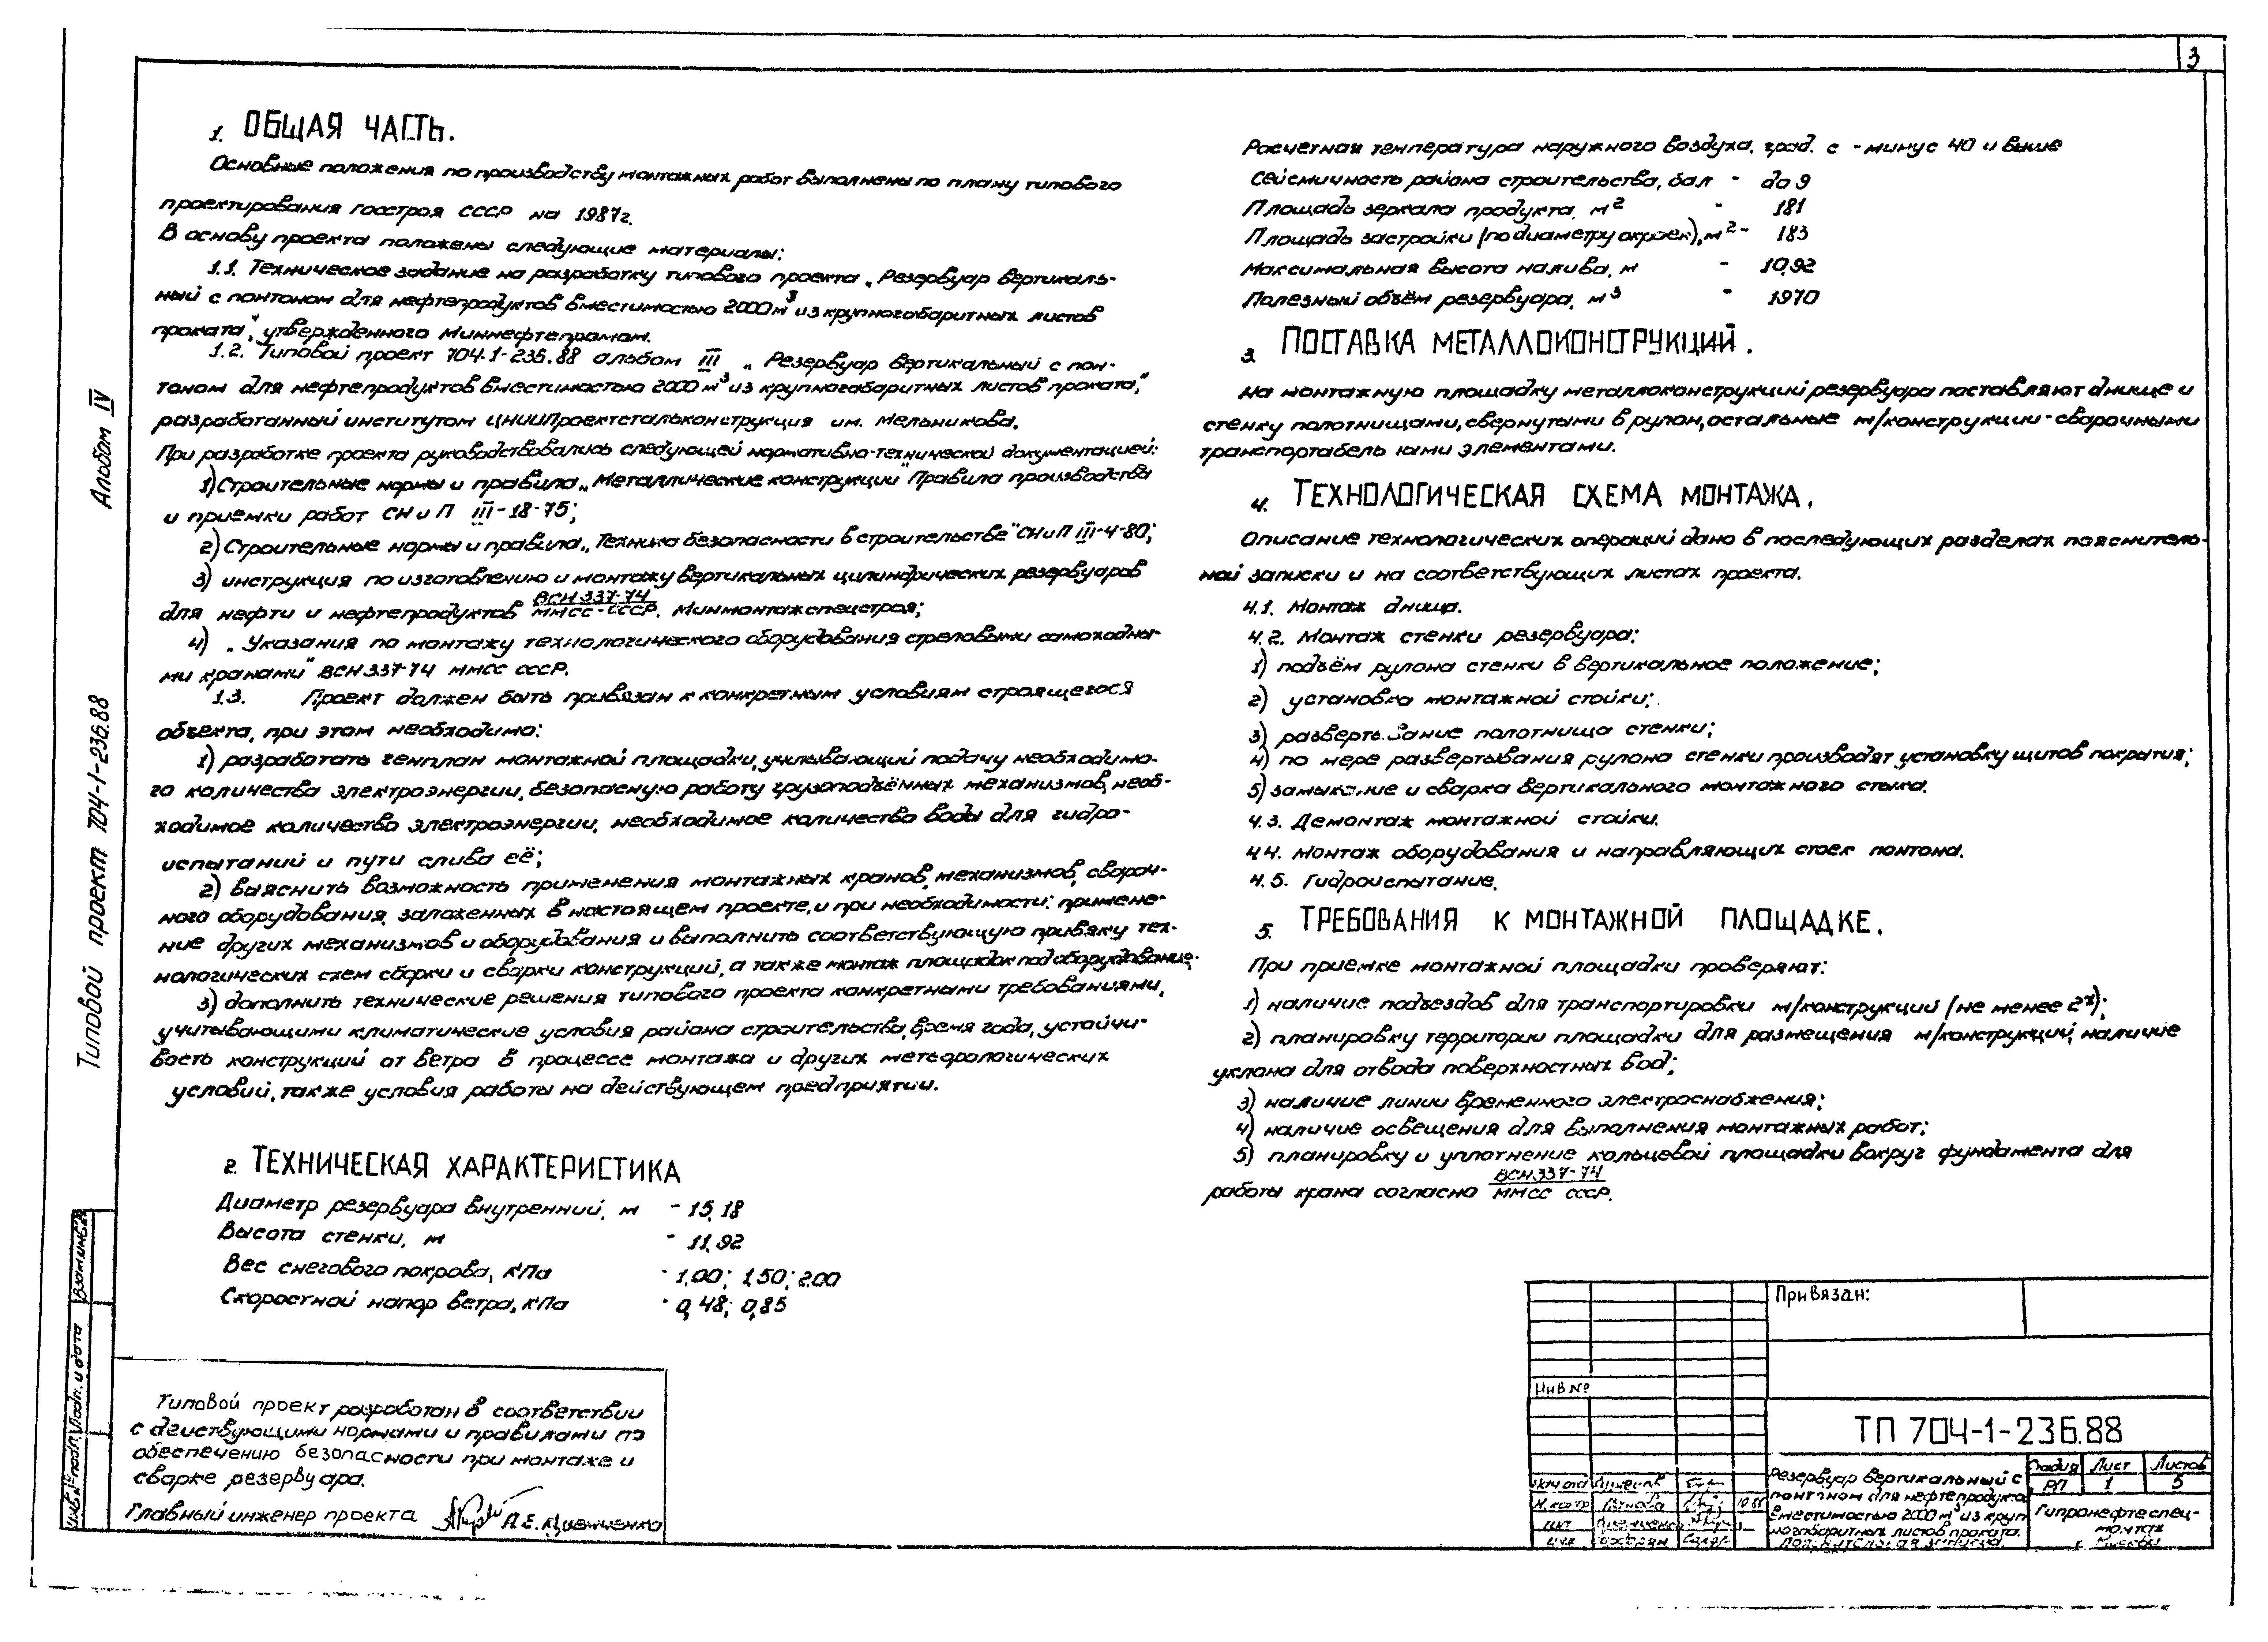 3
1. ОБЩАЯ ЧАСТЬ.
Основные положения по производству монтажных работ выполнены по плану типового
проектирования Госстроя СССР на 1987г.
В основу проекта положены следующие материалы:
1.1. Техническое задание на разработку типового проекта „Резервуар вертикаль-
ный с понтоном для нефтепродуктов вместимостью 2000 м³ из крупногабаритных листов
проката", утвержденного Миннефтепромом.
1.2. Типовой проект 704.1-236.88 альбом III „Резервуар вертикальный с пон-
тоном для нефтепродуктов вместимостью 2000 м³ из крупногабаритных листов проката",
разработанный институтом ЦНИИПроектстальконструкция им. Мельникова.
При разработке проекта руководствовались следующей нормативно-технической документацией:
1) Строительные нормы и правила „Металлические конструкции" Правила производства
и приемки работ СНиП III-18-75;
2) Строительные нормы и правила „Техника безопасности в строительстве" СНиП III-4-80;
3) инструкция по изготовлению и монтажу вертикальных цилиндрических резервуаров
для нефти и нефтепродуктов ВСН 337-74 / ММСС-СССР. Минмонтажспецстроя;
4) „Указания по монтажу технологического оборудования стреловыми самоходны-
ми кранами" ВСН 337-74 ММСС СССР.
1.3. Проект должен быть привязан к конкретным условиям строящегося
объекта, при этом необходимо:
1) разработать генплан монтажной площадки, учитывающий подачу необходимо-
го количества электроэнергии, безопасную работу грузоподъёмных механизмов, необ-
ходимое количество электроэнергии, необходимое количество воды для гидро-
испытаний и пути слива её;
2) выяснить возможность применения монтажных кранов, механизмов, свароч-
ного оборудования, заложенных в настоящем проекте, и при необходимости: примене-
ние других механизмов и оборудования и выполнить соответствующую привязку тех-
нологических схем сборки и сварки конструкций, а также монтаж площадок под оборудование.
3) дополнить технические решения типового проекта конкретными требованиями,
учитывающими климатические условия района строительства, время года, устойчи-
вость конструкций от ветра в процессе монтажа и других метеорологических
условий, также условия работы на действующем предприятии.
2. ТЕХНИЧЕСКАЯ ХАРАКТЕРИСТИКА
Диаметр резервуара внутренний, м - 15,18
Высота стенки, м - 11,92
Вес снегового покрова, кПа - 1,00; 1,50; 2,00
Скоростной напор ветра, кПа - 0,48; 0,85
Расчетная температура наружного воздуха, град. с - минус 40 и выше
Сейсмичность района строительства, бал - до 9
Площадь зеркала продукта, м² - 181
Площадь застройки (по диаметру окроек), м² - 183
Максимальная высота налива, м - 10,92
Полезный объём резервуара, м³ - 1970
3. ПОСТАВКА МЕТАЛЛОКОНСТРУКЦИЙ.
На монтажную площадку металлоконструкций резервуара поставляют днище и
стенку полотнищами, свернутыми в рулон, остальные м/конструкции - сварочными
транспортабельными элементами.
4. ТЕХНОЛОГИЧЕСКАЯ СХЕМА МОНТАЖА.
Описание технологических операций дано в последующих разделах пояснитель-
ной записки и на соответствующих листах проекта.
4.1. Монтаж днища.
4.2. Монтаж стенки резервуара:
1) подъём рулона стенки в вертикальное положение;
2) установка монтажной стойки;
3) развертывание полотнища стенки;
4) по мере развертывания рулона стенки производят установку щитов покрытия;
5) замыкание и сварка вертикального монтажного стыка.
4.3. Демонтаж монтажной стойки.
4.4. Монтаж оборудования и направляющих стоек понтона.
4.5. Гидроиспытание.
5. ТРЕБОВАНИЯ К МОНТАЖНОЙ ПЛОЩАДКЕ.
При приемке монтажной площадки проверяют:
1) наличие подъездов для транспортировки м/конструкций (не менее 2х);
2) планировку территории площадки для размещения м/конструкций, наличие
уклона для отвода поверхностных вод;
3) наличие линии временного электроснабжения;
4) наличие освещения для выполнения монтажных работ;
5) планировку и уплотнение кольцевой площадки вокруг фундамента для
работы крана согласно ВСН 337-74 / ММСС СССР.
Альбом IV
Типовой проект 704-1-236.88
Взам.инв.№
Подп. и дата
Инв.№ подл.
Типовой проект разработан в соответствии
с действующими нормами и правилами по
обеспечению безопасности при монтаже и
сварке резервуара.
Главный инженер проекта
Привязан:
Инв №
ТП 704-1-236.88
Резервуар вертикальный с
понтоном для нефтепродуктов
вместимостью 2000 м³ из круп
ногабаритных листов проката.
Пояснительная записка.
Стадия Лист Листов
РП 1 5
Гипронефтеспец-
монтаж
г. Москва